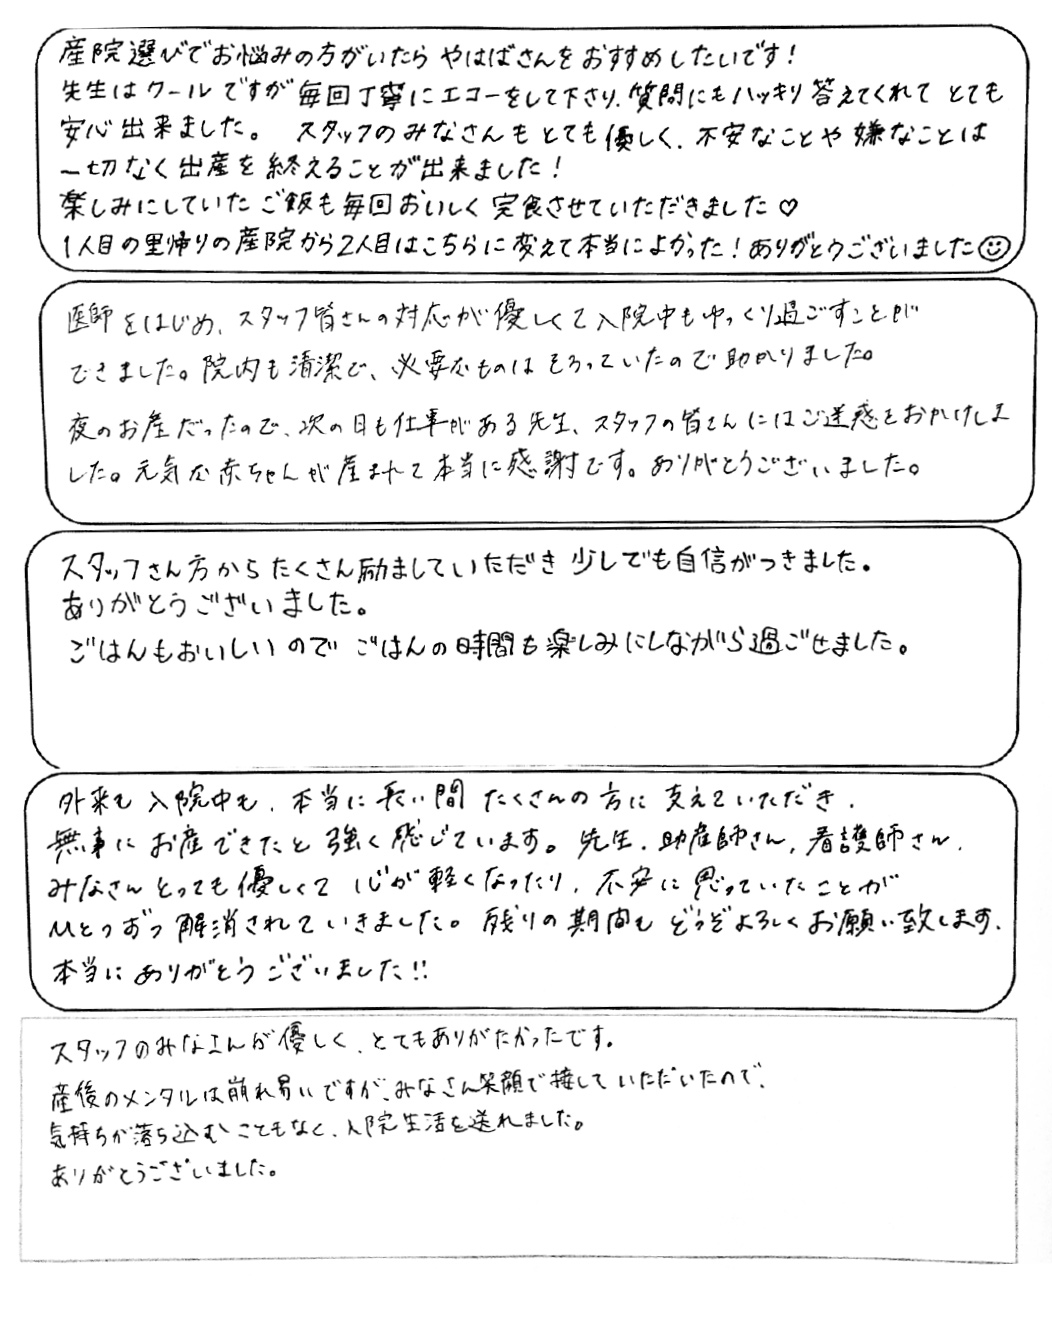 産院選びでお悩みの方がいたら やはばさんをおすすめしたいです!
先生はクールですが毎回丁寧にエコーをして下さり、質問にもハッキリ答えてくれて とても
安心出来ました。 スタッフのみなさんもとても優しく、不安なことや嫌なことは
一切なく出産を終えることが出来ました!
楽しみにしていたご飯も毎回おいしく完食させていただきました♡
1人目の里帰りの産院から2人目はこちらに変えて本当によかった!ありがとうございました☺
医師をはじめ、スタッフ皆さんの対応が優しくて入院中もゆっくり過ごすことが
できました。院内も清潔で、必要なものはそろっていたので助かりました。
夜のお産だったので、次の日も仕事がある先生、スタッフの皆さんにはご迷惑をおかけしま
した。元気な赤ちゃんが産まれて本当に感謝です。ありがとうございました。
スタッフさん方からたくさん励ましていただき 少しでも自信がつきました。
ありがとうございました。
ごはんもおいしいので ごはんの時間も楽しみにしながら過ごせました。
外来も入院中も、本当に長い間 たくさんの方に支えていただき、
無事にお産できたと強く感じています。先生、助産師さん、看護師さん、
みなさんとっても優しくて心が軽くなったり、不安に思っていたことが
ひとつずつ解消されていきました。残りの期間もどうぞよろしくお願い致します。
本当にありがとうございました!!
スタッフのみなさんが優しく、とてもありがたかったです。
産後のメンタルは崩れ易いですが、みなさん笑顔で接していただいたので、
気持ちが落ち込むこともなく、入院生活を送れました。
ありがとうございました。